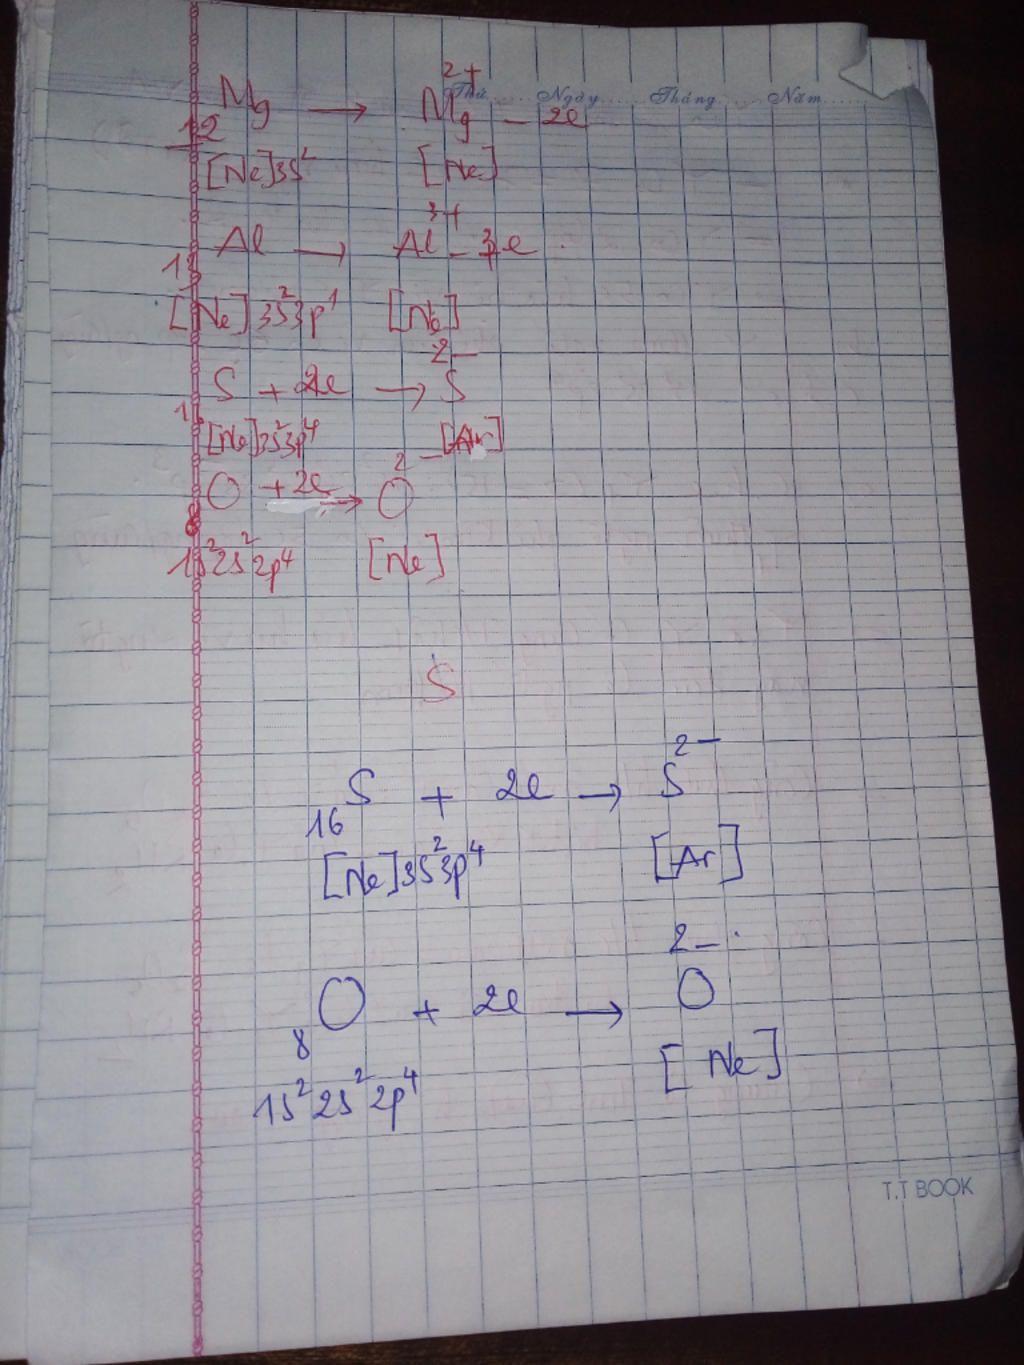 Thứ..... Ngày..... Tháng..... Năm.....
Mg → Mg²⁺ - 2e
12
[Ne]3s² [Ne]
Al → Al³⁺ - 3e
[Ne]3s²3p¹ [Ne]
S + 2e → S²⁻
[Ne]3s²3p⁴ [Ar]
O + 2e → O²⁻
8
1s²2s²2p⁴ [Ne]
S
₁₆S + 2e → S²⁻
[Ne]3s²3p⁴ [Ar]
₈O + 2e → O²⁻
1s²2s²2p⁴ [Ne]
T.T BOOK